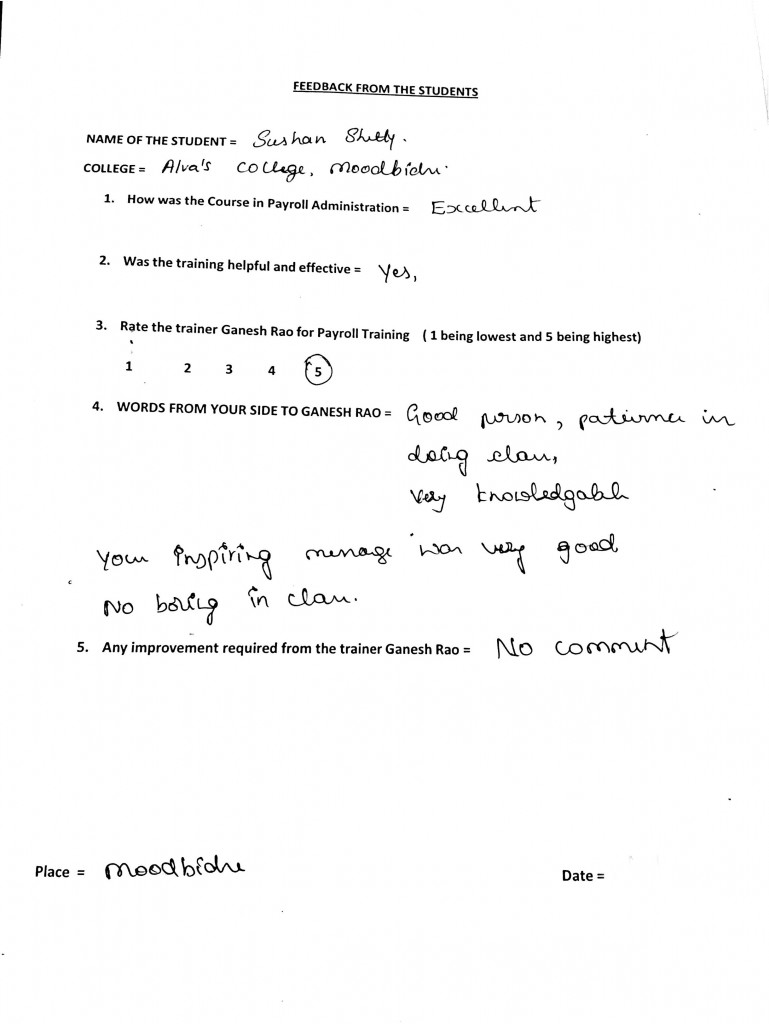 FEEDBACK FROM THE STUDENTS
NAME OF THE STUDENT = Sushan Shetty.
COLLEGE = Alva's college, Moodbidri.
1. How was the Course in Payroll Administration = Excellent
2. Was the training helpful and effective = Yes,
3. Rate the trainer Ganesh Rao for Payroll Training ( 1 being lowest and 5 being highest)
1 2 3 4 5
4. WORDS FROM YOUR SIDE TO GANESH RAO = Good person, in
doing class,
very knowledgable
Your Inspiring message was very good
No boring in class.
5. Any improvement required from the trainer Ganesh Rao = No comment
Place = Moodbidri
Date =